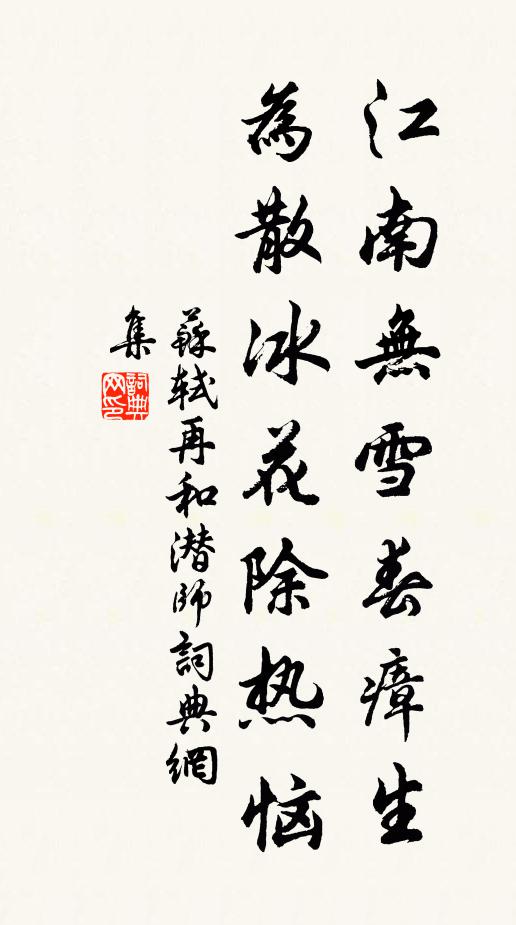 江南無雪春瘴生
為散冰花除热恼
蘇轼再和潜師詞典網
集
詞典网印